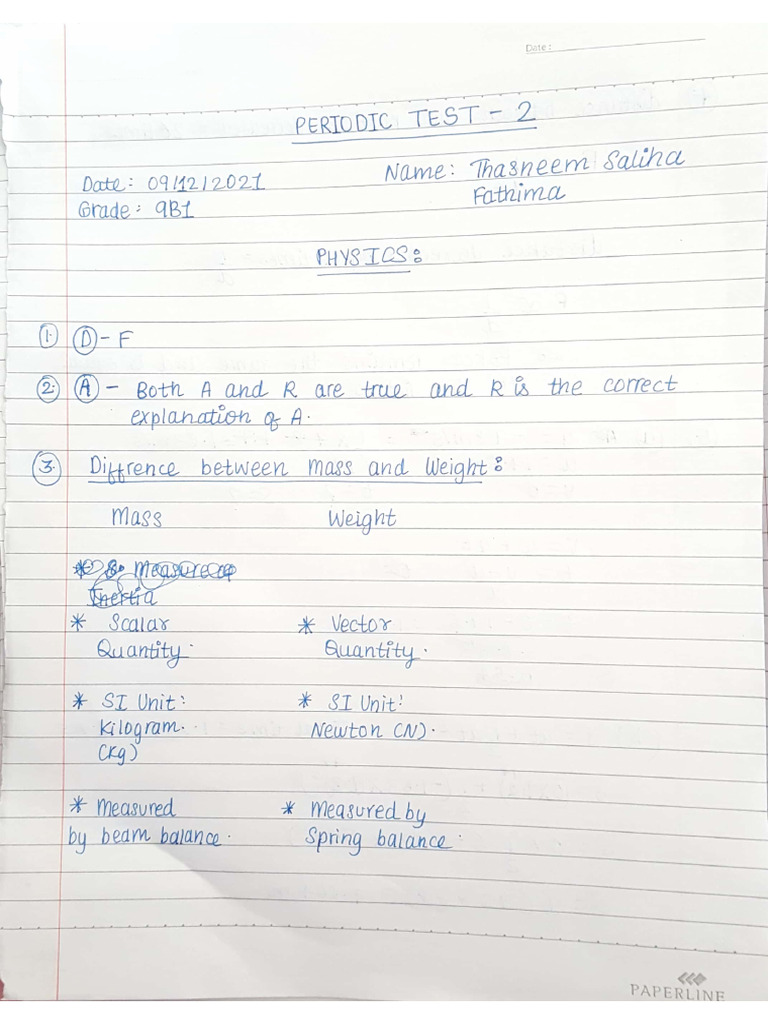 Date:
PERIODIC TEST - 2
Date: 09/12/2021
Name: Thasneem Saliha
Fathima
Grade: 9B1
PHYSICS:
1. D - F
2. A - Both A and R are true and R is the correct
explanation of A.
3. Diffrence between mass and Weight:
Mass Weight
* Measure of
Inertia
* Scalar * Vector
Quantity. Quantity.
* SI Unit: * SI Unit:
Kilogram. Newton (N).
(Kg)
* Measured * Measured by
by beam balance. Spring balance.
PAPERLINE